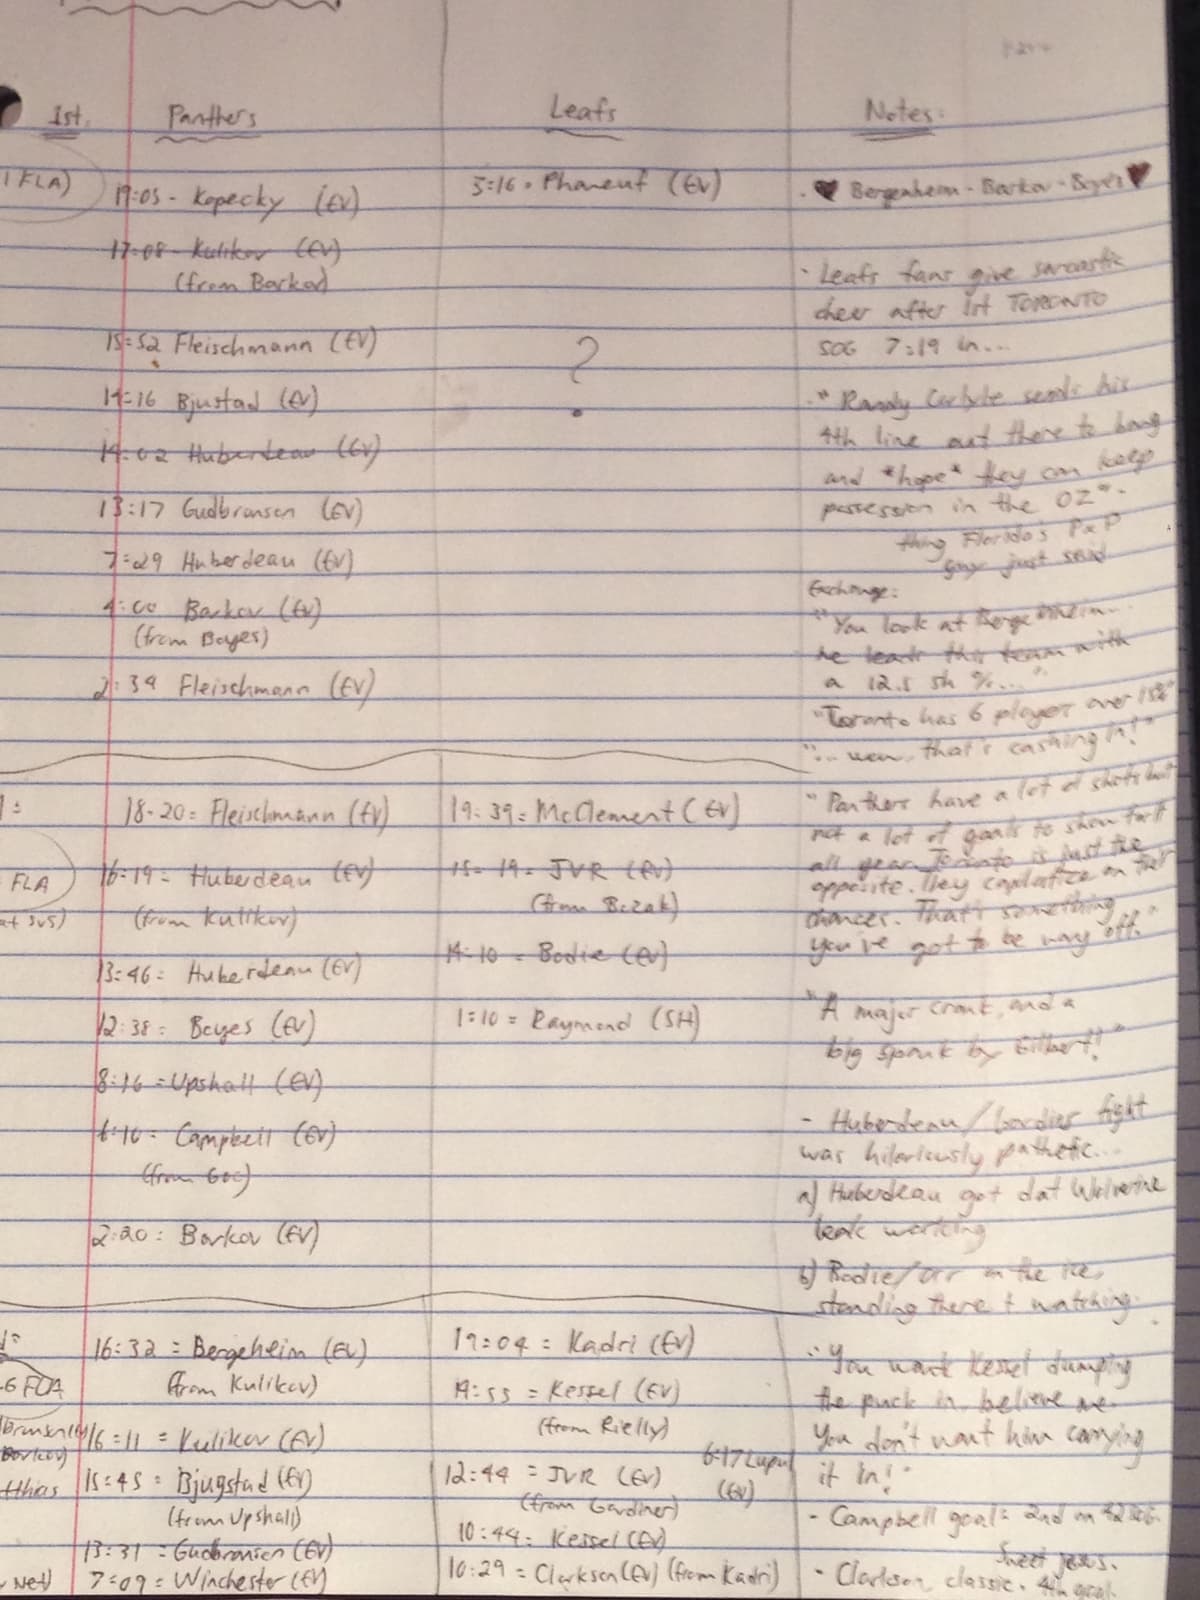 1st. Panthers Leafs Notes:
1 FLA) 19:05 - Kopecky (EV) 5:16 - Phaneuf (EV) - ♥ Bergenheim - Barkov - Boyes ♥
17:08 - Kulikov (EV)
(from Barkov)
- Leafs fans give sarcastic
cheer after 1st TORONTO
15:52 Fleischmann (EV) ? SOG 7:19 in...
14:16 Bjustad (EV) - "Randy Carlyle sends his
4th line out there to bang
14:02 Huberdeau (EV) and *hope* they can keep
13:17 Gudbranson (EV) possession in the OZ" -
thing Florida's PxP
guy just said
7:29 Huberdeau (EV)
Exchange:
4:00 Barkov (EV) "You look at Bergenheim...
(from Boyes) he leads this team with
2:39 Fleischmann (EV) a 12.5 sh %..."
"Toronto has 6 players over 15%"
"... wow, that's cashing in!"
18:20 = Fleischmann (EV) 19:39 = McClement (EV) "Panthers have a lot of shots but
not a lot of goals to show for it
16:19 = Huberdeau (EV) 15:19 = JVR (EV) all year. Toronto is just the
FLA opposite. They capitalize on their
(from Kulikov) (from Bozak) chances. That's something
at 5v5) you've got to be wary of."
14:10 = Bodie (EV)
13:46 = Huberdeau (EV)
12:38 = Boyes (EV) 1:10 = Raymond (SH) "A major crank, and a
big spank by Gilbert!"
8:16 = Upshall (EV)
6:10 = Campbell (EV) - Huberdeau/Gardies fight
was hilariously pathetic...
(from Goc)
a) Huberdeau got dat Wolverine
2:20 = Barkov (EV) leak working
b) Bodie/Orr on the ice,
standing there + watching.
16:32 = Bergeheim (EV) 19:04 = Kadri (EV) - "You want Kessel dumping
6 FLA (from Kulikov) 14:53 = Kessel (EV) the puck in, believe me.
(from Rielly) You don't want him carrying
16:11 = Kulikov (EV) it in!"
Barkov)
15:45 = Bjugstad (EV) 12:44 = JVR (EV) 6:17 Lupul
(from Gardiner) (EV)
(from Upshall) - Campbell goal = 2nd on
10:44 = Kessel (EV)
13:31 = Gudbranson (EV) Sweet Jesus.
Net) 7:09 = Winchester (EV) 10:29 = Clarkson (EV) (from Kadri) - Clarkson, classic. 4th goal.